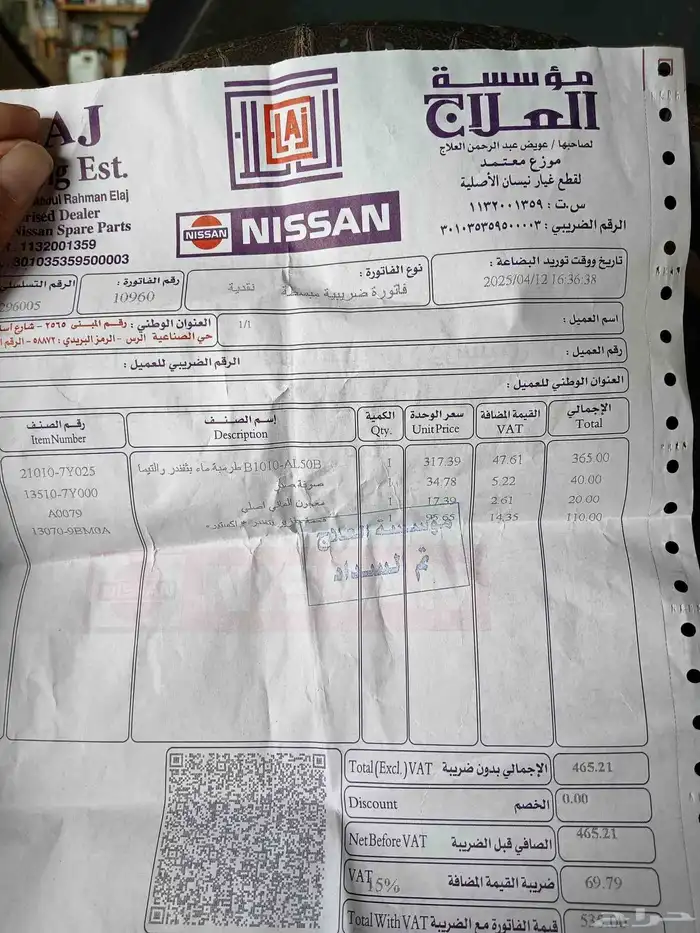 مؤسسة
العلاج
لصاحبها / عويض عبد الرحمن العلاج
موزع معتمد
لقطع غيار نيسان الأصلية
س.ت : ١١٣٢٠٠١٣٥٩
الرقم الضريبي : ٣٠١٠٣٥٣٥٩٥٠٠٠٠٣
ELAJ
NISSAN
NISSAN
AJ
g Est.
Rahman Elaj
rised Dealer
Nissan Spare Parts
1132001359
301035359500003
تاريخ ووقت توريد البضاعة :
2025/04/12 16:36:38
نوع الفاتورة :
فاتورة ضريبية مبسطة نقدية
رقم الفاتورة :
10960
الرقم التسلسلي
296005
اسم العميل :
1/1
العنوان الوطني : رقم المبنى ٢٥٦٥ - شارع
حي الصناعية الرس - الرمز البريدي : ٥٨٨٧٢ - الرقم
رقم العميل :
الرقم الضريبي للعميل :
العنوان الوطني للعميل :
رقم الصنف إسم الصنف الكمية سعر الوحدة القيمة المضافة الإجمالي
Item Number Description Qty. Unit Price VAT Total
21010-7Y025 B1010-AL50B طرمبة ماء بثفندر والتيما 1 317.39 47.61 365.00
13510-7Y000 1 34.78 5.22 40.00
A0079 اصلي 1 17.39 2.61 20.00
13070-9BM0A 1 14.35 110.00
مؤسسة العلاج
تم السداد
Total (Excl.) VAT الإجمالي بدون ضريبة 465.21
Discount الخصم 0.00
Net Before VAT الصافي قبل الضريبة 465.21
VAT 15% ضريبة القيمة المضافة 69.79
Total With VAT قيمة الفاتورة مع الضريبة
حراج